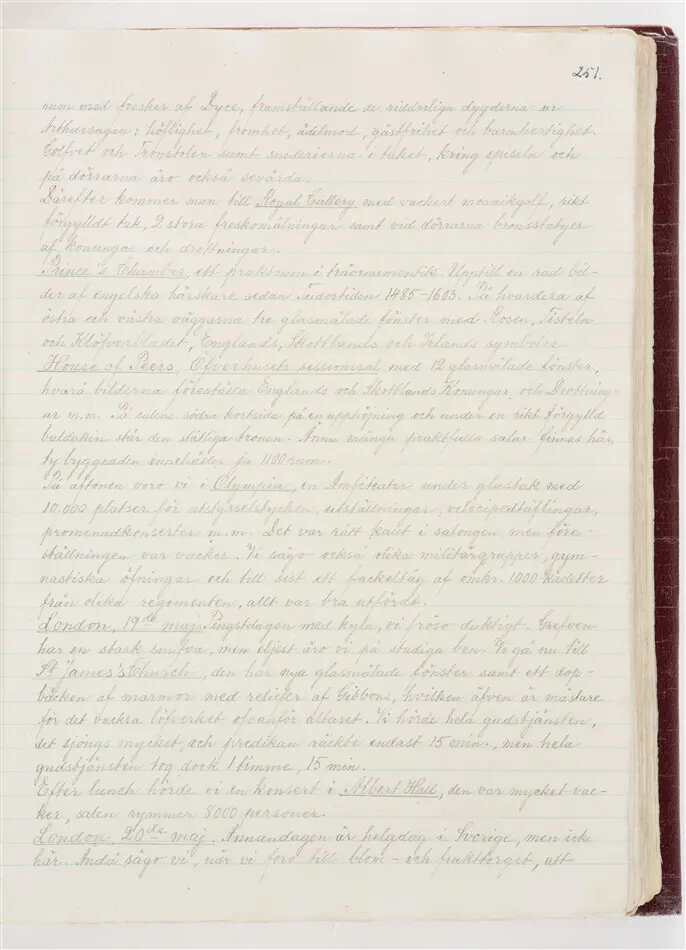 251.
rum med fresker af Dyce, framställande de ridderliga dygderna ur
Arthursagan: höflighet, fromhet, ädelmod, gästfrihet och barmhertighet.
Golfvet och Tronstolen samt sniderierna i taket, kring spiseln och
på dörrarna äro också sevärda.
Därefter kommer man till Royal Gallery med vackert mosaikgolf, rikt
förgylldt tak, 2 stora freskomålningar samt vid dörrarna bronsstatyer
af Konungar och drottningar.
Prince's Chamber, ett praktrum i träornamentik. Upptill en rad bil-
der af engelska härskare sedan Tudortiden 1485-1603. På hvardera af
östra och västra väggarna tre glasmålade fönster med Rosen, Tisteln
och Klöfverbladet, Englands, Skottlands och Irlands symboler
House of Peers, Öfverhusets sessionssal med 12 glasmålade fönster,
hvarå bilderna föreställa Englands och Skottlands Konungar och Drottning-
ar m.m. På salens södra kortsida på en upphöjning och under en rikt förgylld
baldakin står den ståtliga tronen. Ännu många praktfulla salar finnas här
ty byggnaden innehåller ju 1100 rum.
På aftonen voro vi i Olympia, en Amfiteater under glastak med
10.000 platser för utstyrselstycken, utställningar, velocipedtäflingar,
promenadkonserter m.m. Det var rätt kallt i salongen men före-
ställningen var vacker. Vi sågo också olika militärgrupper, gym-
nastiska öfningar och till sist ett fackeltåg af omkr. 1000 kadetter
från olika regementen, allt var bra utfördt.
London, 19de maj. Pingstdagen med kyla, vi fröso duktigt. Grefven
har en stark snufva, men eljest äro vi på stadiga ben. Vi gå nu till
St James's Church, den har nya glasmålade fönster samt ett dop-
bäcken af marmor med reliefer af Gibbons, hvilken äfven är mästare
för det vackra löfverket ofvanför altaret. Vi hörde hela gudstjänsten,
det sjöngs mycket, och predikan räckte endast 15 min., men hela
gudstjänsten tog dock 1 timme, 15 min.
Efter lunch hörde vi en konsert i Albert Hall, den var mycket vac-
ker, salen rymmer 8000 personer.
London, 20de maj. Annandagen är helgdag i Sverige, men icke
här. Ändå sågo vi, när vi foro till blom- och frukttorget, att